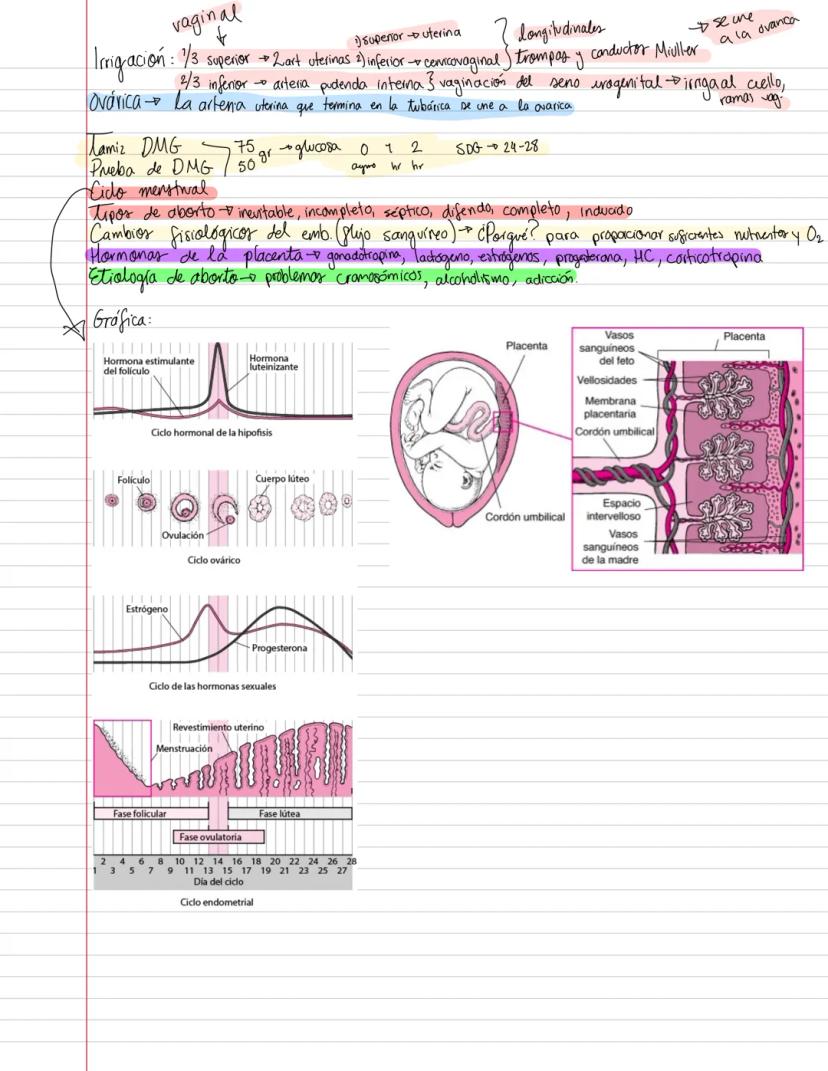 vaginal
Irrigación: 1/3 superior → 2 art uterinas 1) superior → uterina 2) inferior → cervicovaginal } longitudinales trompas y conductos Müller → se une a la ovarica
2/3 inferior → arteria pudenda interna } vaginación del seno urogenital → irriga al cuello, ramas vag.
Ovárica → La arteria uterina que termina en la tubárica se une a la ovarica
Tamiz DMG 75 gr → glucosa 0 1 2 SDG → 24-28
Prueba de DMG 50 ayuno hr hr
Ciclo menstrual
Tipos de aborto → inevitable, incompleto, séptico, diferido, completo, inducido
Cambios fisiológicos del emb. (flujo sanguíneo) → ¿Porqué? para proporcionar suficientes nutrientes y O2
Hormonas de la placenta → gonadotropina, lactógeno, estrógenos, progesterona, HC, corticotropina
Etiología de aborto → problemas cromosómicos, alcoholismo, adicción.
Gráfica:
Hormona estimulante
del folículo
Hormona
luteinizante
Ciclo hormonal de la hipofisis
Folículo
Cuerpo lúteo
Ovulación
Ciclo ovárico
Estrógeno
Progesterona
Ciclo de las hormonas sexuales
Revestimiento uterino
Menstruación
Fase folicular
Fase lútea
Fase ovulatoria
2 4 6 8 10 12 14 16 18 20 22 24 26 28
1 3 5 7 9 11 13 15 17 19 21 23 25 27
Día del ciclo
Ciclo endometrial
Placenta
Cordón umbilical
Vasos
sanguíneos
del feto
Placenta
Vellosidades
Membrana
placentaria
Cordón umbilical
Espacio
intervelloso
Vasos
sanguíneos
de la madre